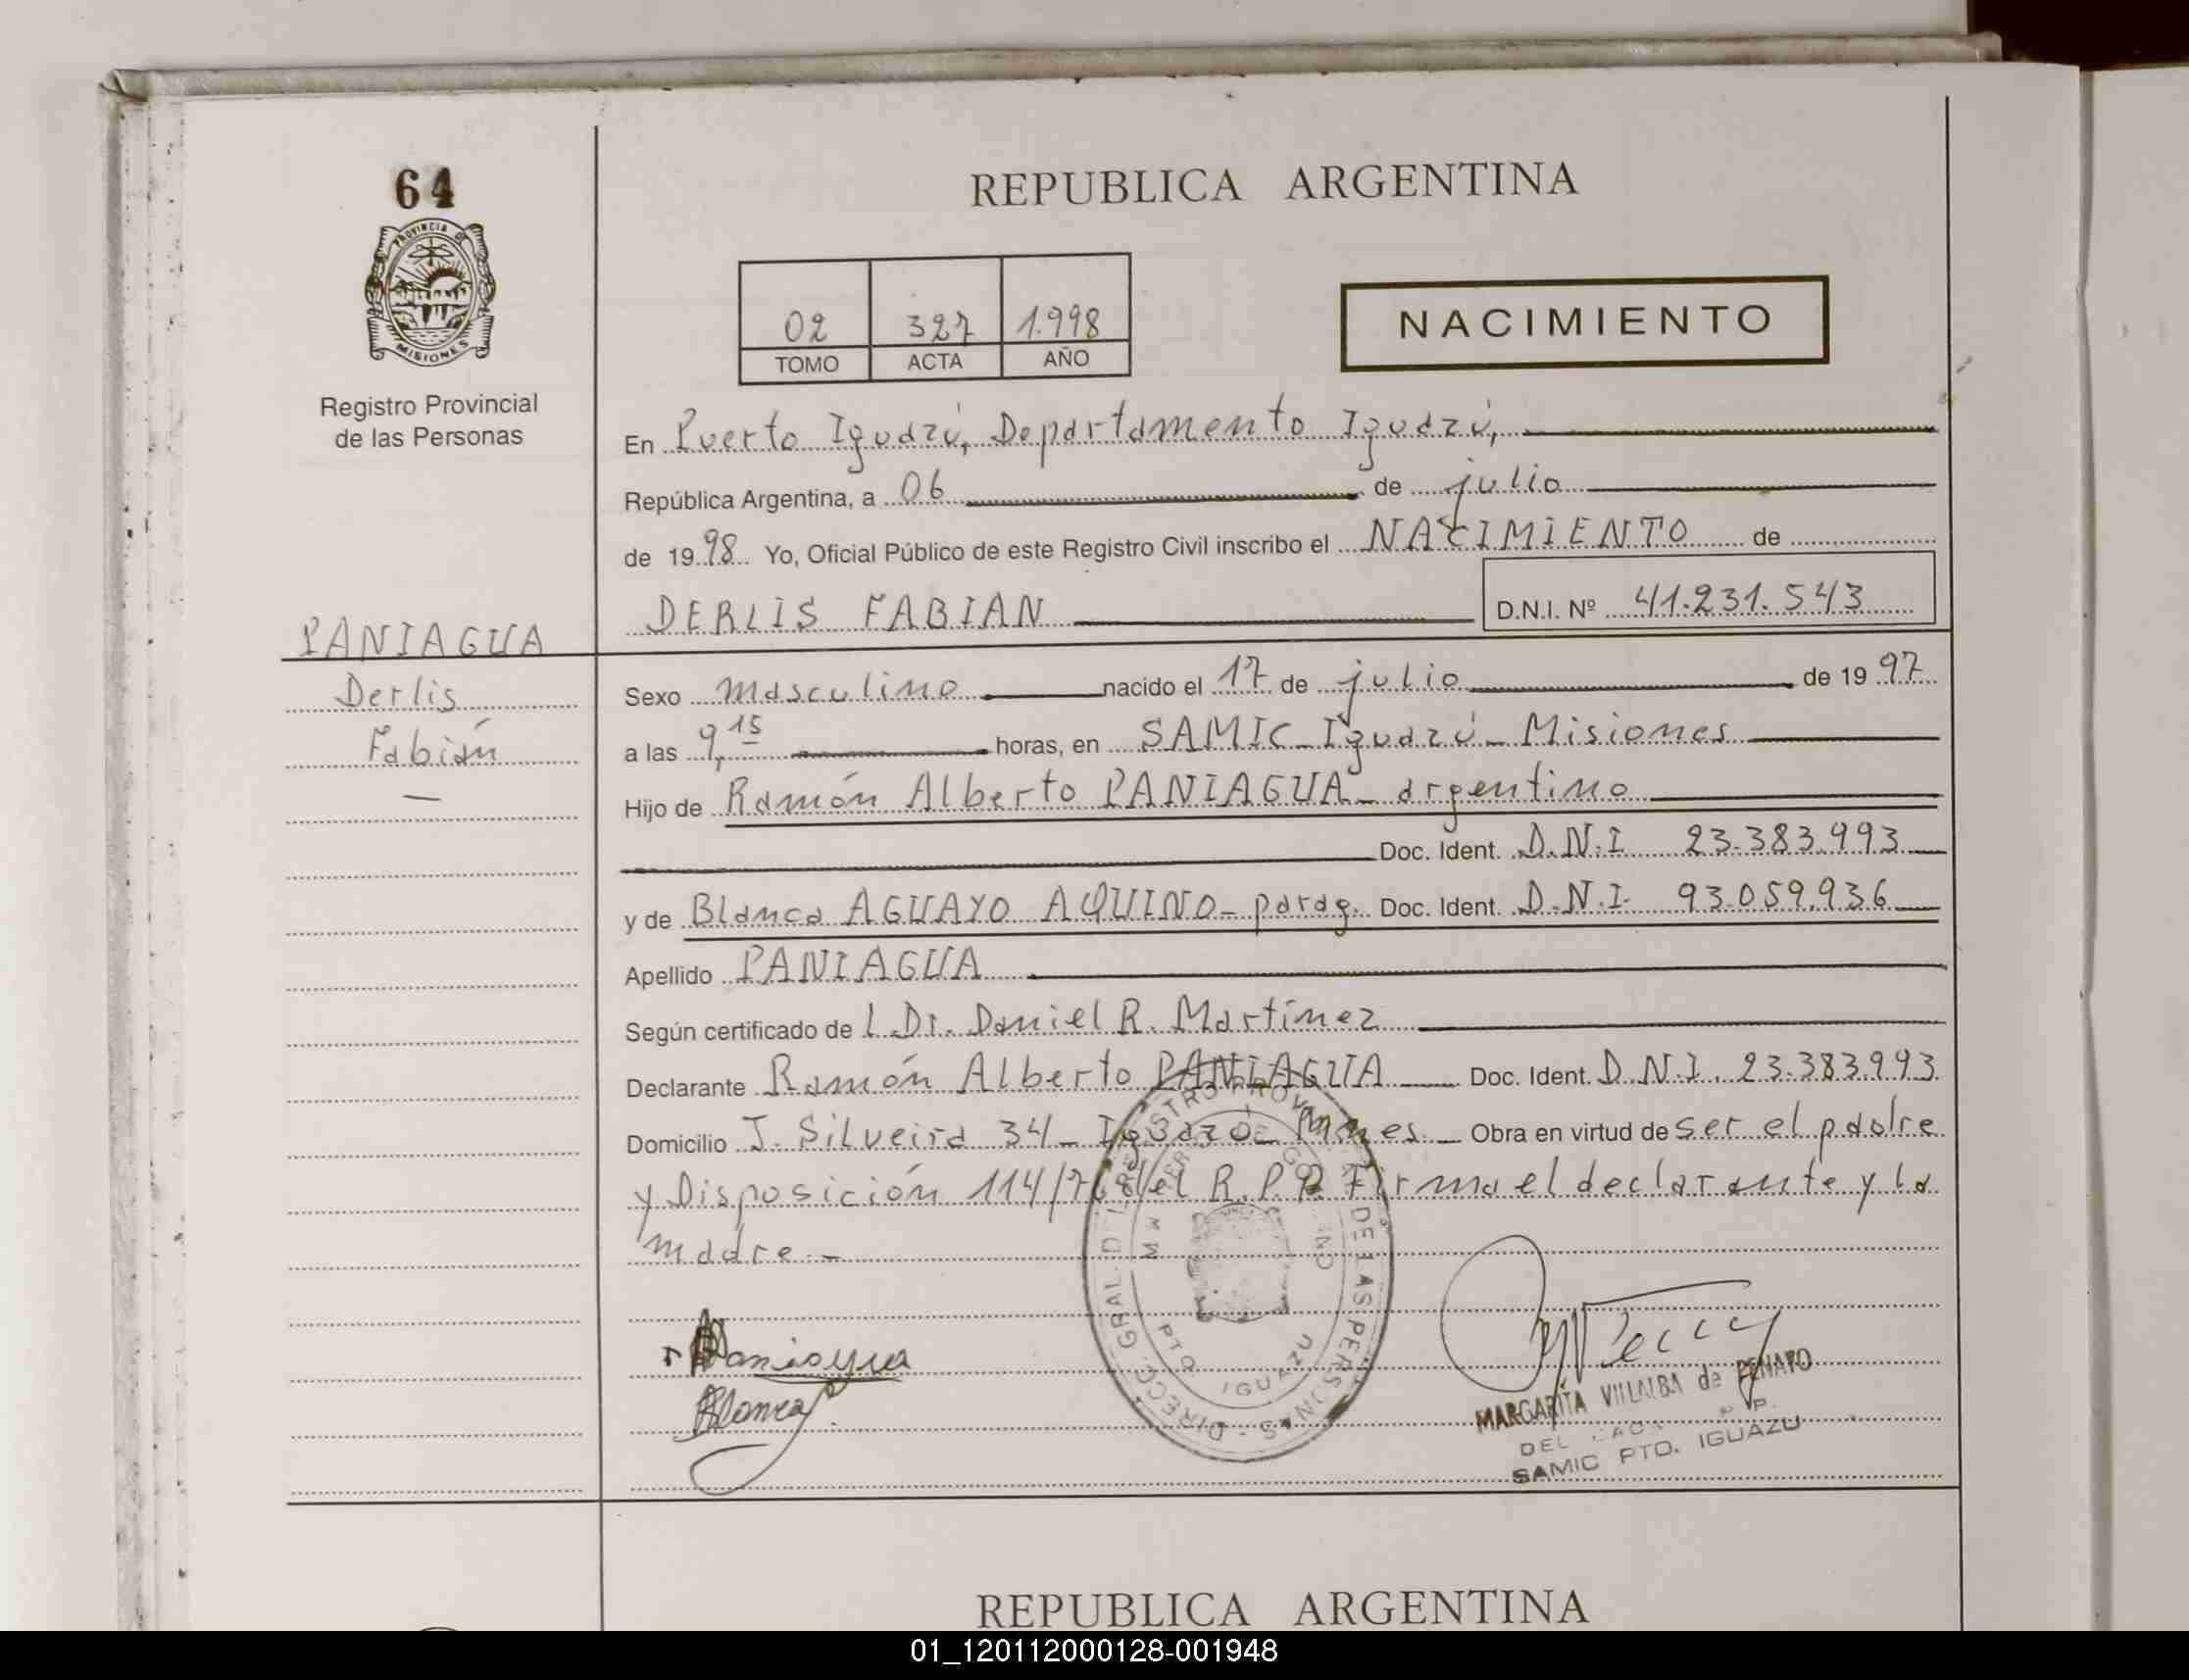 64
PROVINCIA DE
MISIONES
Registro Provincial
de las Personas
REPUBLICA ARGENTINA
02 327 1.998
TOMO ACTA AÑO
NACIMIENTO
En Puerto Iguazú, Departamento Iguazú,
República Argentina, a 06 de julio
de 19 98 Yo, Oficial Público de este Registro Civil inscribo el NACIMIENTO de
DERLIS FABIAN D.N.I. Nº 41.231.543
PANIAGUA
Derlis
Fabián
Sexo masculino nacido el 17 de julio de 19 97
a las 9,15 horas, en SAMIC - Iguazú - Misiones
Hijo de Ramón Alberto PANIAGUA - argentino
Doc. Ident. D.N.I 23.383.993
y de Blanca AGUAYO AQUINO - parag. Doc. Ident. D.N.I. 93.059.936
Apellido PANIAGUA
Según certificado de l Dr. Daniel R. Martínez
Declarante Ramón Alberto PANIAGUA Doc. Ident. D.N.I. 23.383.993
Domicilio J. Silveira 34 - Iguazú - Mnes. Obra en virtud de ser el padre
y Disposición 114/76 del R.P.P. Firma el declarante y la
madre. -
DIRECC. GRAL. DEL REGISTRO PROVINCIAL DE LAS PERSONAS
PTO IGUAZU
Paniagua
Blanca
MARGARITA VILLALBA de PENAYO
DEL R.P.P.
SAMIC PTO. IGUAZU
REPUBLICA ARGENTINA
01_120112000128-001948